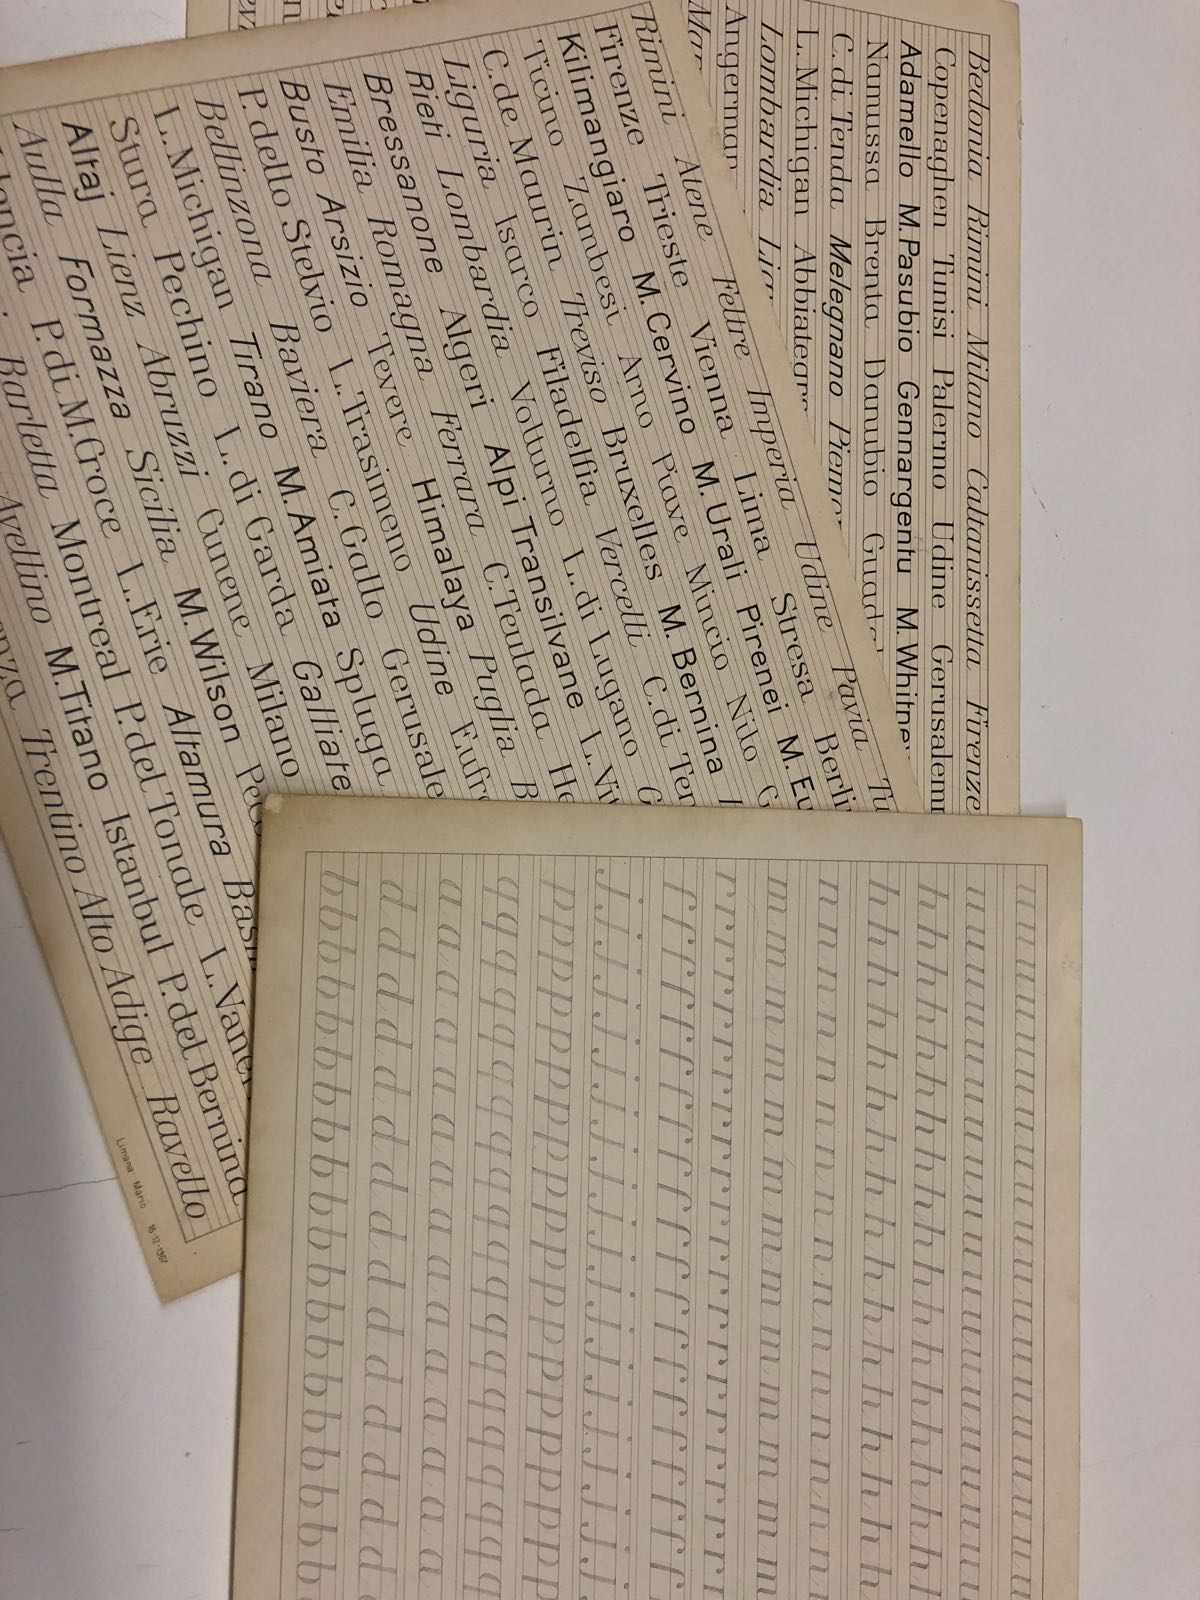 Bedonia Rimini Milano Caltanissetta Firenze
Copenaghen Tunisi Palermo Udine Gerusalem
Adamello M.Pasubio Gennargentu M.Whitne
Nanussa Brenta Danubio Guad
C.di Tenda Melegnano Piemo
L.Michigan Abbiategr
Lombardia
Angerman
Rimini Atene Feltre Imperia Udine Pavia Tu
Firenze Trieste Vienna Lima Stresa Berli
Kilimangiaro M.Cervino M.Urali Pirenei M.Eu
Ticino Zambesi Arno Piave Mincio Nilo G
C.de Maurin Treviso Bruxelles M. Bernina
Liguria Isarco Filadelfia Vercelli C.di Ter
Rieti Lombardia Volturno L.di Lugano G
Bressanone Algeri Alpi Transilvane L.Vi
Emilia Romagna Ferrara C.Teulada He
Busto Arsizio Tevere Himalaya Puglia B
P.dello Stelvio L.Trasimeno Udine Eufr
Bellinzona Baviera C.Gallo Gerusale
L.Michigan Tirano M.Amiata Spluga
Stura Pechino L.di Garda Galliate
Altaj Lienz Abruzzi Cunene Milano
Aulla Formazza Sicilia M.Wilson Pe
encia P.di M.Croce L.Erie Altamura Bas
Barletta Montreal P.del Tonale L.Vaner
Avellino M.Titano Istanbul P.del Bernina
enza Trentino Alto Adige Ravello
Limana Mario 16-12-1967
u u u u u u u u u u u u u u u u u u
u u u u u u u u u u u u u u u u u u
h h h h h h h h h h h h h h h h h h
h h h h h h h h h h h h h h h h h h
n n n n n n n n n n n n n n n n n
m m m m m m m m m m m m m
r r r r r r r r r r r r r r r r r r r r r r
f f f f f f f f f f f f f f f f f f f f
j j j j j j j j j j j j j j j j j j j j
p p p p p p p p p p p p p p p p p p
q q q q q q q q q q q q q q q q q q
a a a a a a a a a a a a a a a a
d d d d d d d d d d d d d d d d
b b b b b b b b b b b b b b b b b b